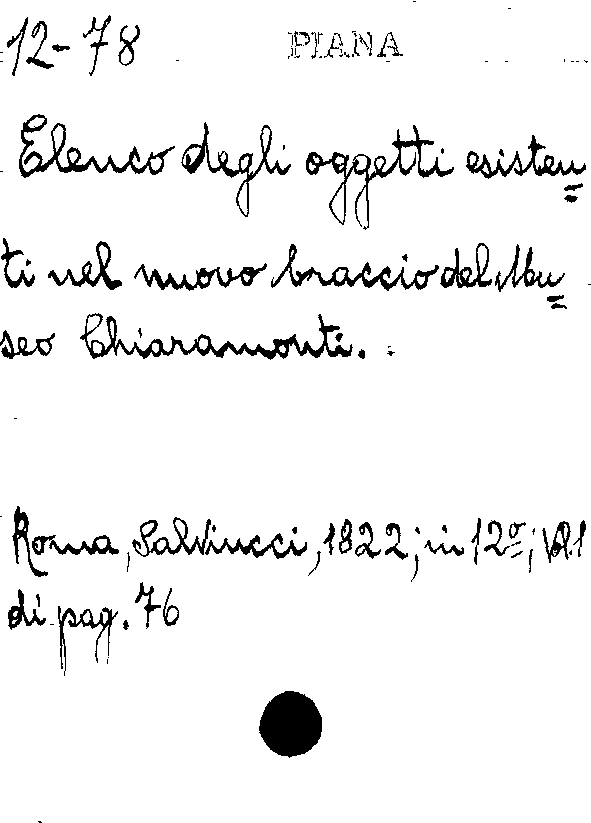 12-78 PIANA
Elenco degli oggetti esisten=
ti nel nuovo braccio del Mu=
seo Chiaramonti.
Roma, Salviucci, 1822; in 12º; Vol. 1
di pag. 76